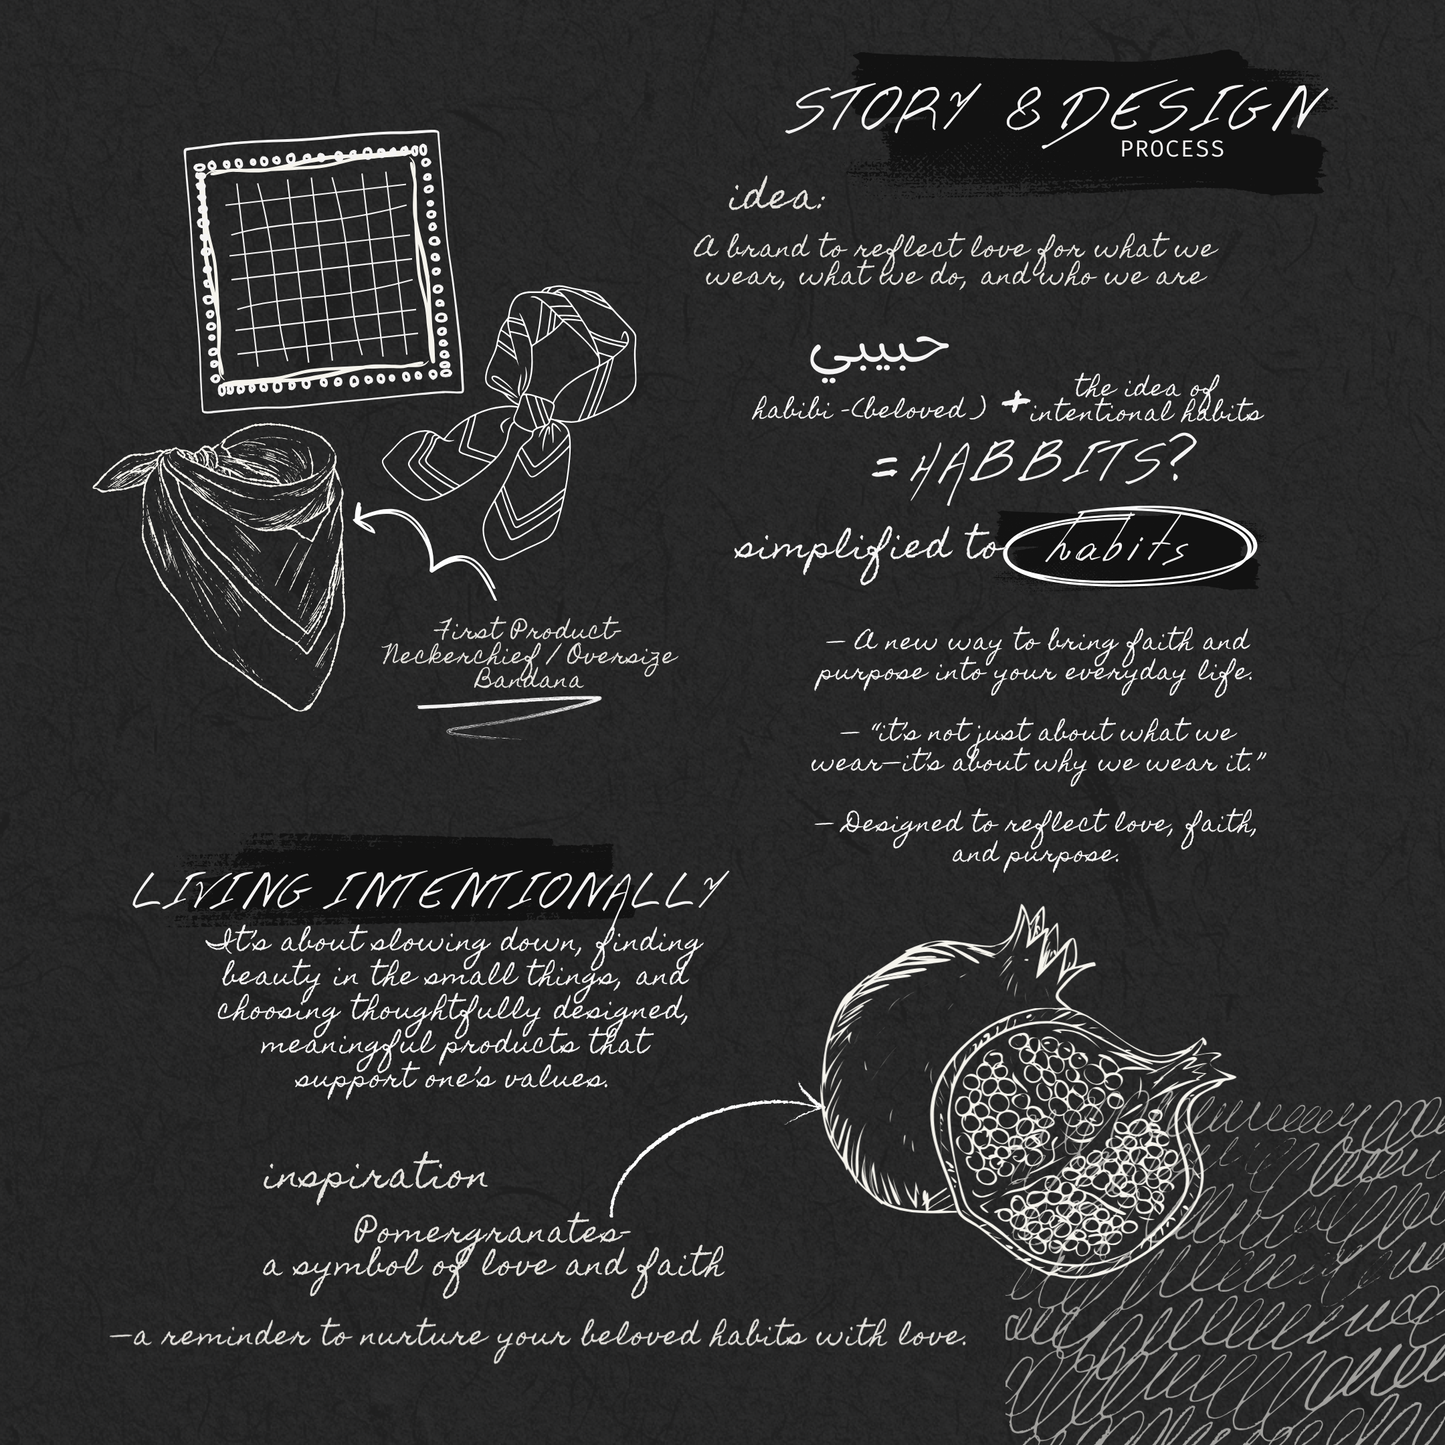 STORY & DESIGN
PROCESS
idea:
A brand to reflect love for what we
wear, what we do, and who we are
حبيبي
habibi -(beloved) + the idea of
intentional habits
= HABBITS?
simplified to habits
– A new way to bring faith and
purpose into your everyday life.
– “it's not just about what we
wear—it's about why we wear it.”
– Designed to reflect love, faith,
and purpose.
First Product-
Neckerchief / Oversize
Bandana
LIVING INTENTIONALLY
It's about slowing down, finding
beauty in the small things, and
choosing thoughtfully designed,
meaningful products that
support one's values.
inspiration
Pomergranates-
a symbol of love and faith
—a reminder to nurture your beloved habits with love.